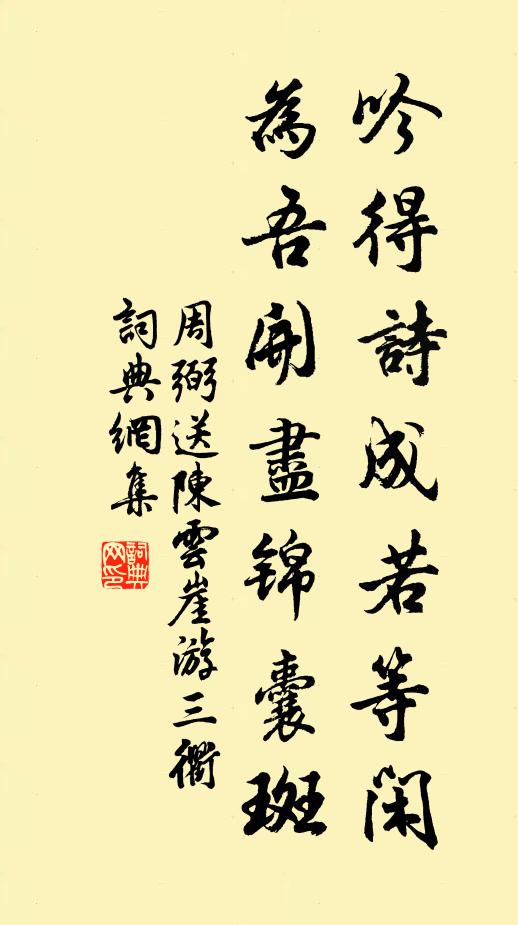 吟得詩成若等閑
為吾開盡錦囊斑
周弼送陳雲崖游三衢
詞典網集
詞典網印